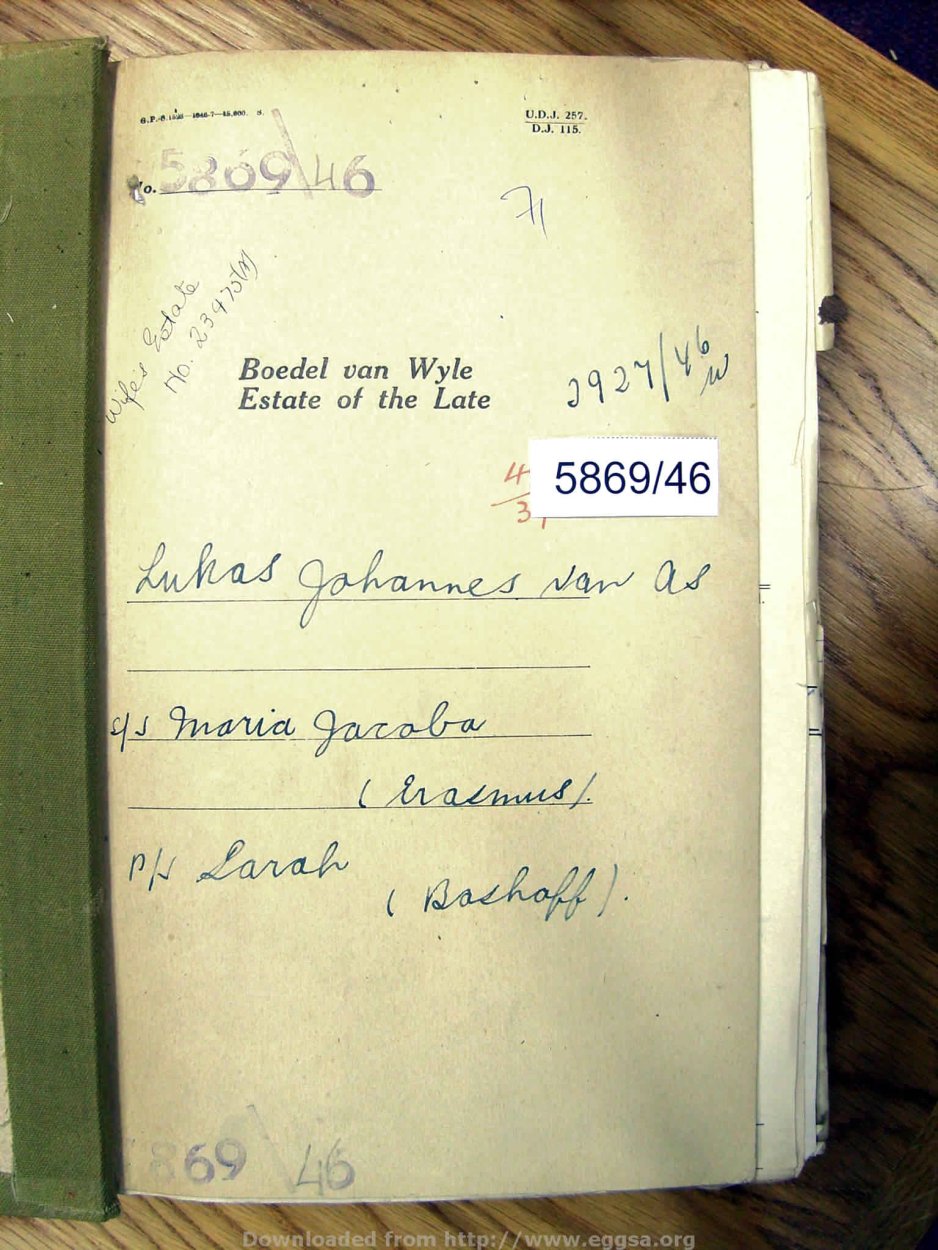 G.P.-S.1626—1946-7—15,000. S.
U.D.J. 257.
D.J. 115.
No. 5869/46
71
Wife's Estate
No. 23475(M)
Boedel van Wyle
Estate of the Late
3927/46
W
4
3
5869/46
Lukas Johannes van As
s/s Maria Jacoba
(Erasmus).
p/s Sarah
(Boshoff).
869 46
Downloaded from http://www.eggsa.org